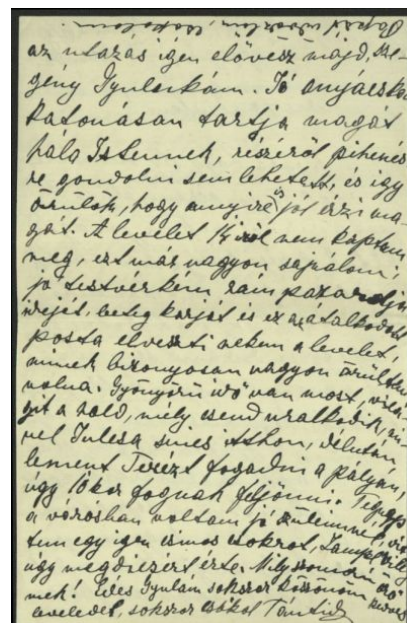 Papát üdvözlöm, csókolom
az utazás igen elővesz majd, sze-
gény Gyuluskám. Jó anyácska
katonásan tartja magát
hála Istennek, részéről pihenés
re gondolni sem lehetett, és így
örülök, hogy annyira is jól érzi ma-
gát. A levelet 14ről nem kaptam
meg, ezt már nagyon sajnálom,
jó testvérkém rám pazarolja
idejét, beteg karját és ez az átalkodott
posta elveszti nekem a levelet,
minek bizonyosan nagyon örültem
volna. Gyönyörű idő van most, vilá-
git a hold, mély csend uralkodik, mi-
vel Julcsa sincs itthon, délután
lement Terézt fogadni a pályán,
úgy 10kor fognak feljönni. Tegnap
a városban voltam jó szüleimmel, vet-
tem egy igen csinos csokrot,
úgy megdicsért érte. Mily szomorú
nek! Édes Gyulám sokszor köszönöm kedves
leveledet, sokszor csókol